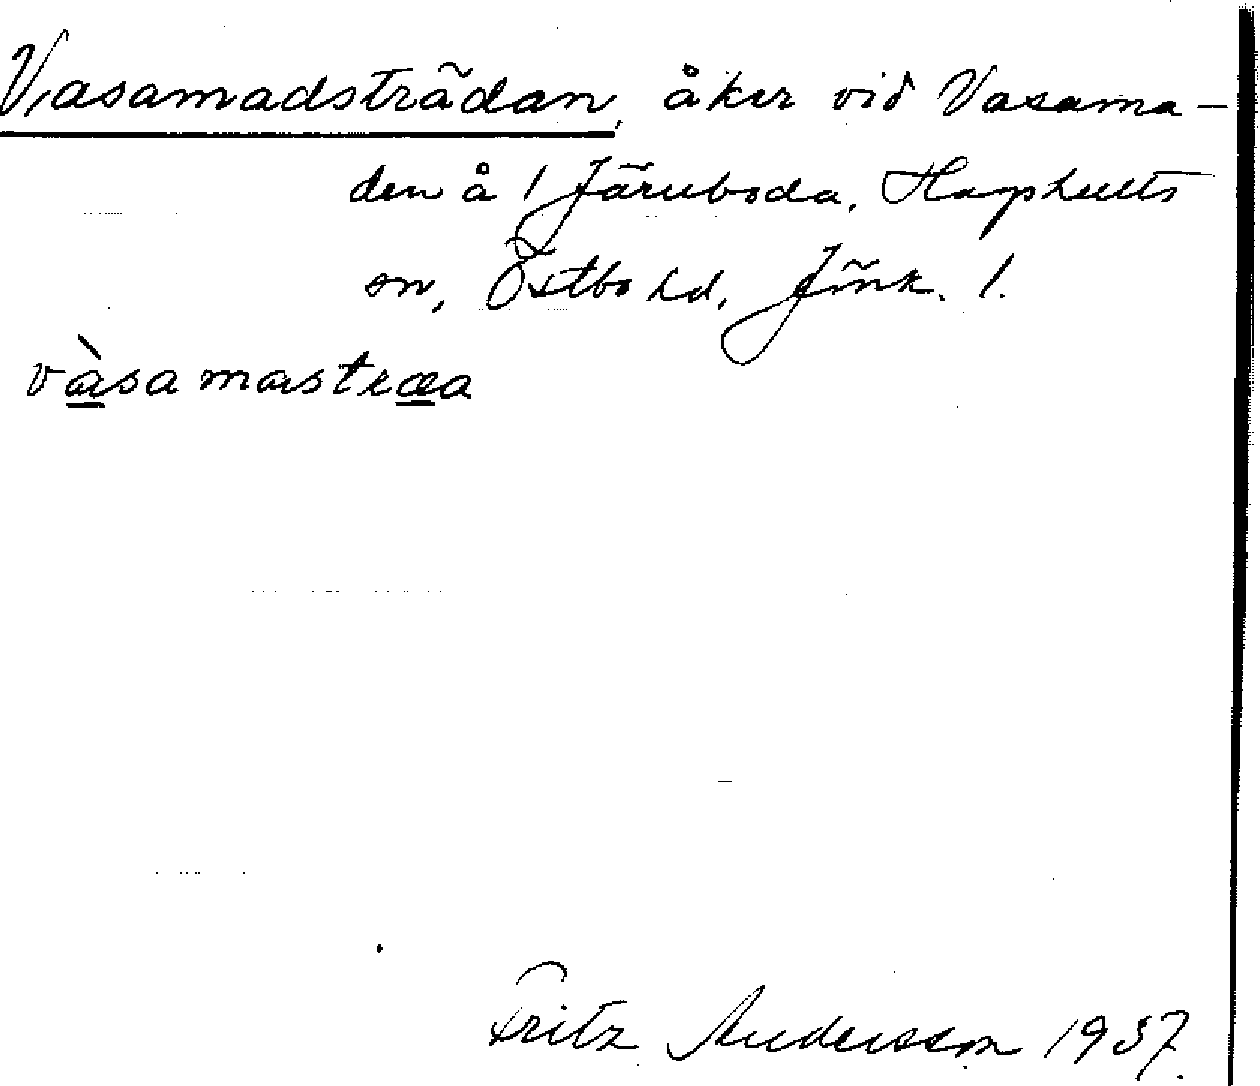 Vasamadsträdan, åker vid Vasama-
den å 1 Järuboda, Hagshults
sn, Östbo hd, Jönk. l.
vàsamastræa
Fritz Andersson 1937.